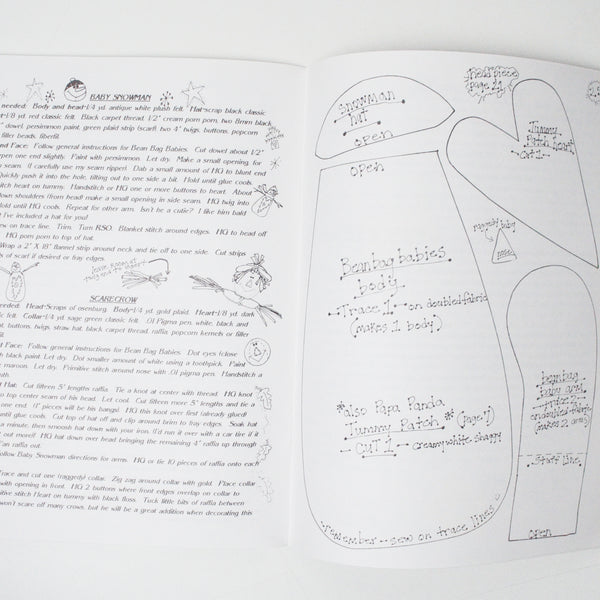 BABY SNOWMAN
needed: Body and head-1/4 yd. antique white plush felt. Hat-scrap black classic
-1/8 yd. red classic felt. Black carpet thread, 1/2" cream pom pom, two 8mm black
" dowel, persimmon paint, green plaid strip (scarf) two 4" twigs, buttons, popcorn
filler beads, fiberfil.
nd Face: Follow general instructions for Bean Bag Babies. Cut dowel about 1/2"
rpen one end slightly. Paint with persimmon. Let dry. Make a small opening, for
n seam. (I carefully use my seam ripper). Dab a small amount of HG to blunt end
Quickly push it into the hole, tilting out to one side a bit. Hold until glue cools.
titch heart on tummy. Handstitch or HG one or more buttons to heart. About
down shoulders (from head) make a small opening in side seam. HG twig into
Hold until HG cools. Repeat for other arm. Isn't he a cutie? I like him bald
t I've included a hat for you!
ew on trace line. Trim. Turn RSO. Blanket stitch around edges. HG to head off
HG pom pom to top of hat.
Wrap a 2" X 18" flannel strip around neck and tie off to one side. Cut strips
s of scarf if desired or fray edges.
SCARECROW
needed: Head-Scraps of osenburg. Body-1/4 yd. gold plaid. Heart-1/8 yd. dark
c felt. Collar-1/4 yd. sage green classic felt. .01 Pigma pen, white, black and
nt, buttons, twigs, straw hat, black carpet thread, raffia, popcorn kernels or filler
l.
nd Face: Follow general instructions for Bean Bag Babies. Dot eyes (glove
h black paint. Let dry. Dot smaller amount of white using a toothpick. Paint
e maroon. Let dry. Primitive stitch around nose with .01 pigma pen. Handstitch a
outh.
d Hat: Cut fifteen 5" lengths raffia. Tie a knot at center with thread. HG knot
o top center seam of his head. Let cool. Cut fifteen more 5" lengths and tie a
one end. (1" pieces will be his bangs). HG this knot over first (already glued)
until glue cools. Cut top of hat off and clip around brim to fray edges. Soak hat
a minute, then smoosh hat down with your iron. (I'd run it over with a car tire if it
t out more!) HG hat down over head bringing the remaining 4" raffia up through
Fan raffia out.
Follow Baby Snowman directions for arms. HG or tie 10 pieces of raffia onto each
Trace and cut one (raggedy) collar. Zig zag around collar with gold. Place collar
with opening in front. HG 2 buttons where front edges overlap on collar to
itive stitch Heart on tummy with black floss. Tuck little bits of raffia between
won't scare off many crows, but he will be a great addition when decorating this
snowman
HAT
open
open
Bean bag babies
body
- Trace 1 - on doubled fabric
(makes 1 body)
*also Papa Panda
Tummy Patch * (page 1)
- CUT 1 - creamy white shaggy
remember -- sew on trace lines
head piece
page 21
Tummy
Patch heart
- Cut 1 -
raggedy baby
nose
beanbag
baby arm
(makes 2 arms)
start line
open